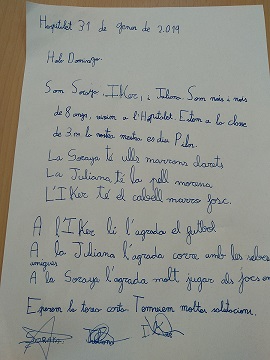 Hospitalet 31 de gener de 2019
Hola Domingo.
Som Soraya, IKer, i Juliana. Som nois i nois
de 8 anys, vivim a l'Hospitalet. Estem a la classe
de 3r m la nostra mestra es diu Pilar.
La Soraya té ulls marrons clarets
La Juliana, té la pell morena
L'IKer té el cabell marró fosc.
A l'IKer li l'agrada el futbol
A la Juliana l'agrada corre amb les seves
amigues
A la Soraya l'agrada molt jugar als jocs en
Esperem la teva carta. Tenvuem moltes salutacions.
Soraya Juliana IKer